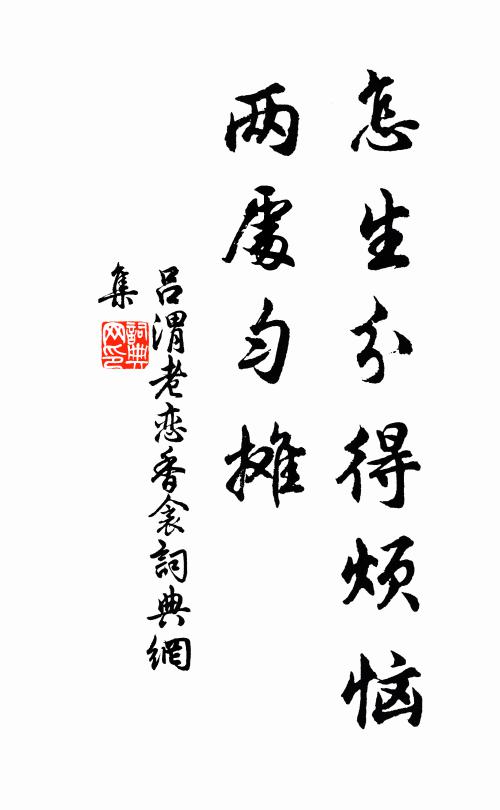 怎生分得烦恼
两處匀摊
吕渭老恋香衾詞典網
集
詞典
网印